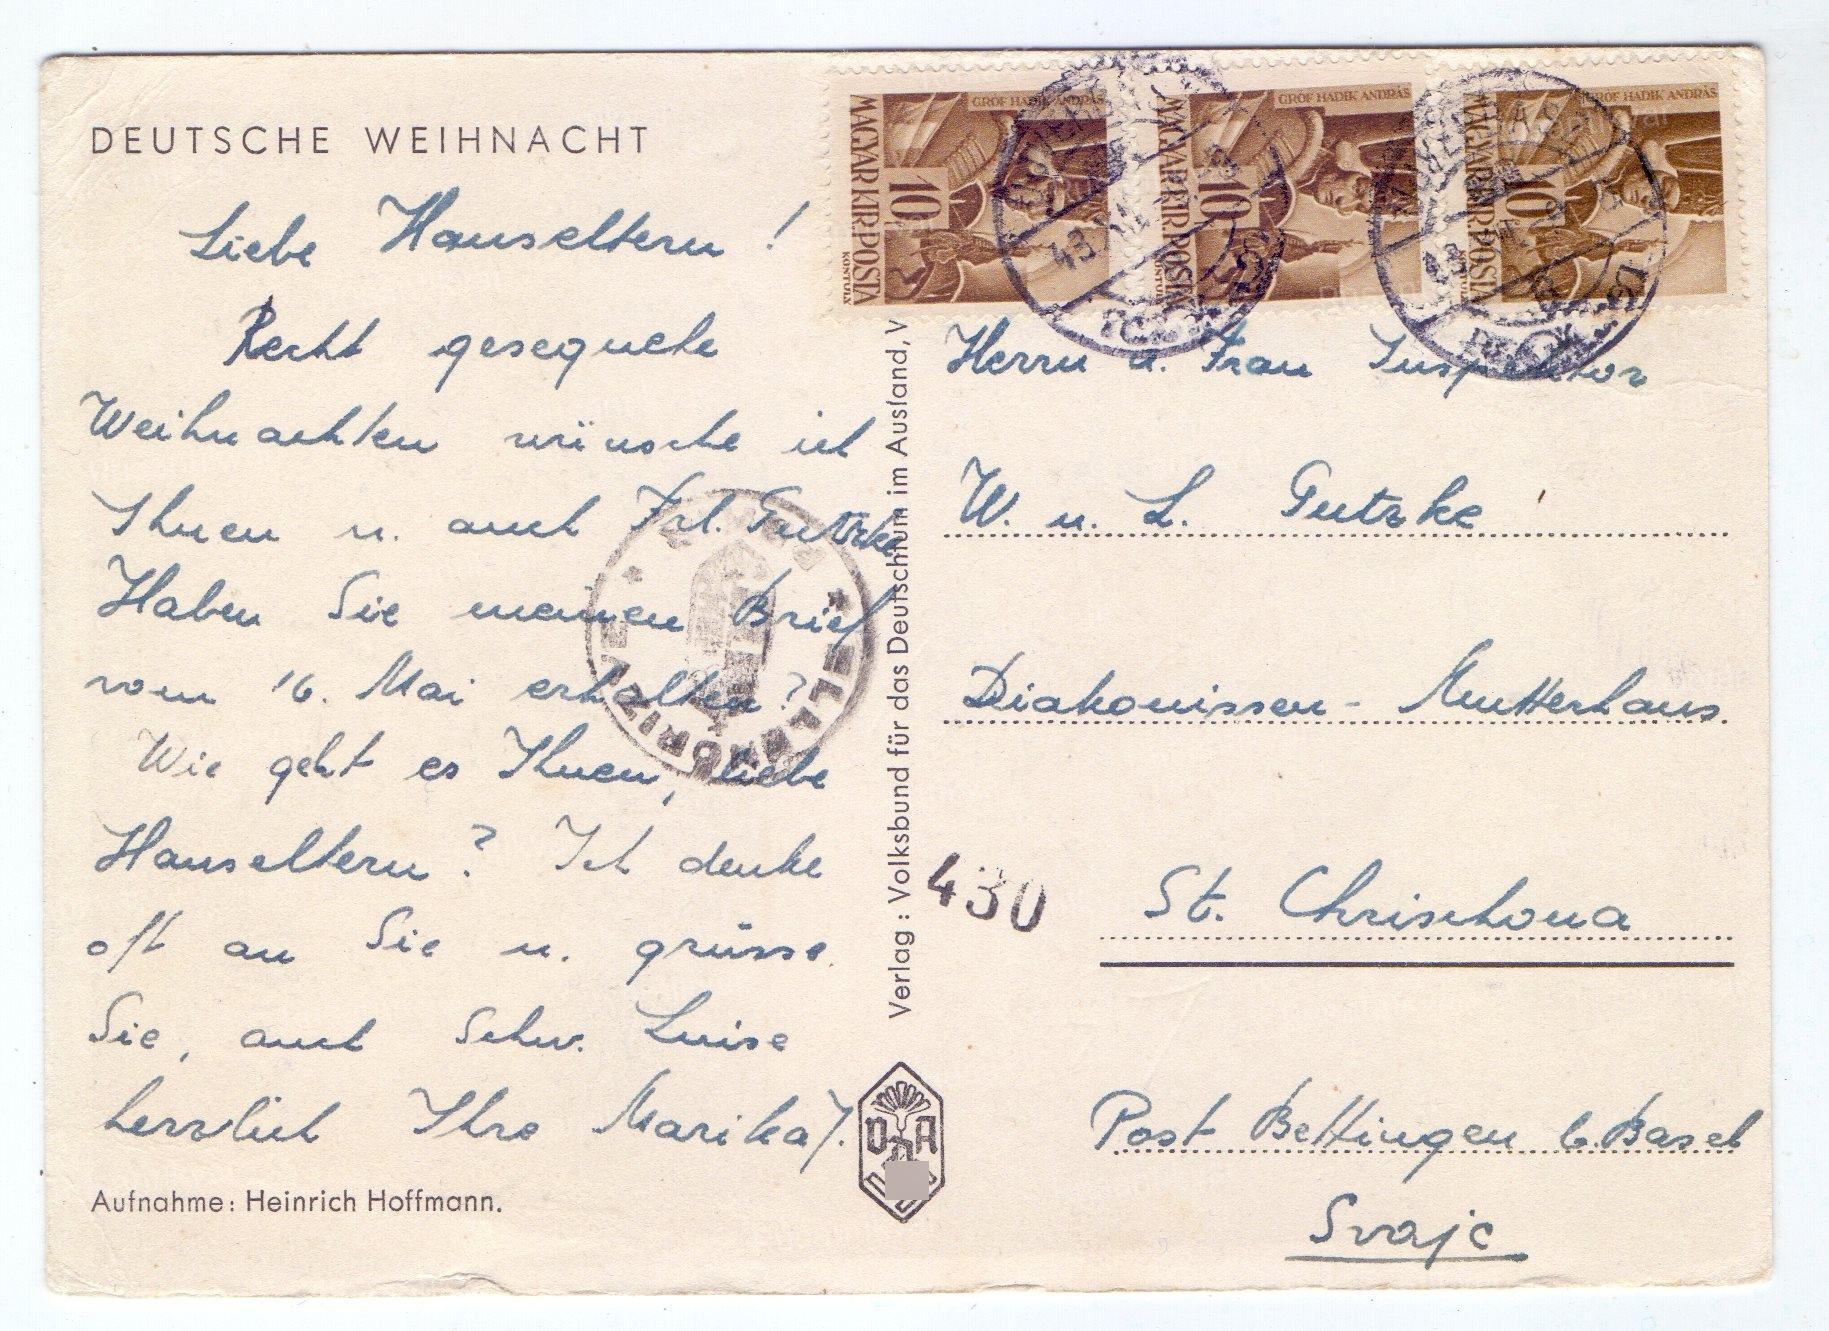 DEUTSCHE WEIHNACHT
Liebe Hauseltern!
Recht gesegnete
Weihnachten wünsche ich
Ihnen u. auch Frl. Gutzke
Haben Sie meinen Brief
vom 16. Mai erhalten?
Wie geht es Ihnen, liebe
Hauseltern? Ich denke
oft an Sie u. grüsse
Sie, auch Schw. Luise
herzlich Ihre Marika
Aufnahme: Heinrich Hoffmann.
Verlag: Volksbund für das Deutschtum im Ausland, V
VDA
GRÓF HADIK ANDRÁS
MAGYAR KIR. POSTA
10
KÖNTULY
GRÓF HADIK ANDRÁS
MAGYAR KIR. POSTA
10
GRÓF HADIK ANDRÁS
MAGYAR KIR. POSTA
10
43
ELLENŐRIZVE
430
Herrn u. Frau Inspektor
W. u. L. Gutzke
Diakonissen-Mutterhaus
St. Chrischona
Post Bettingen b. Basel
Svajc